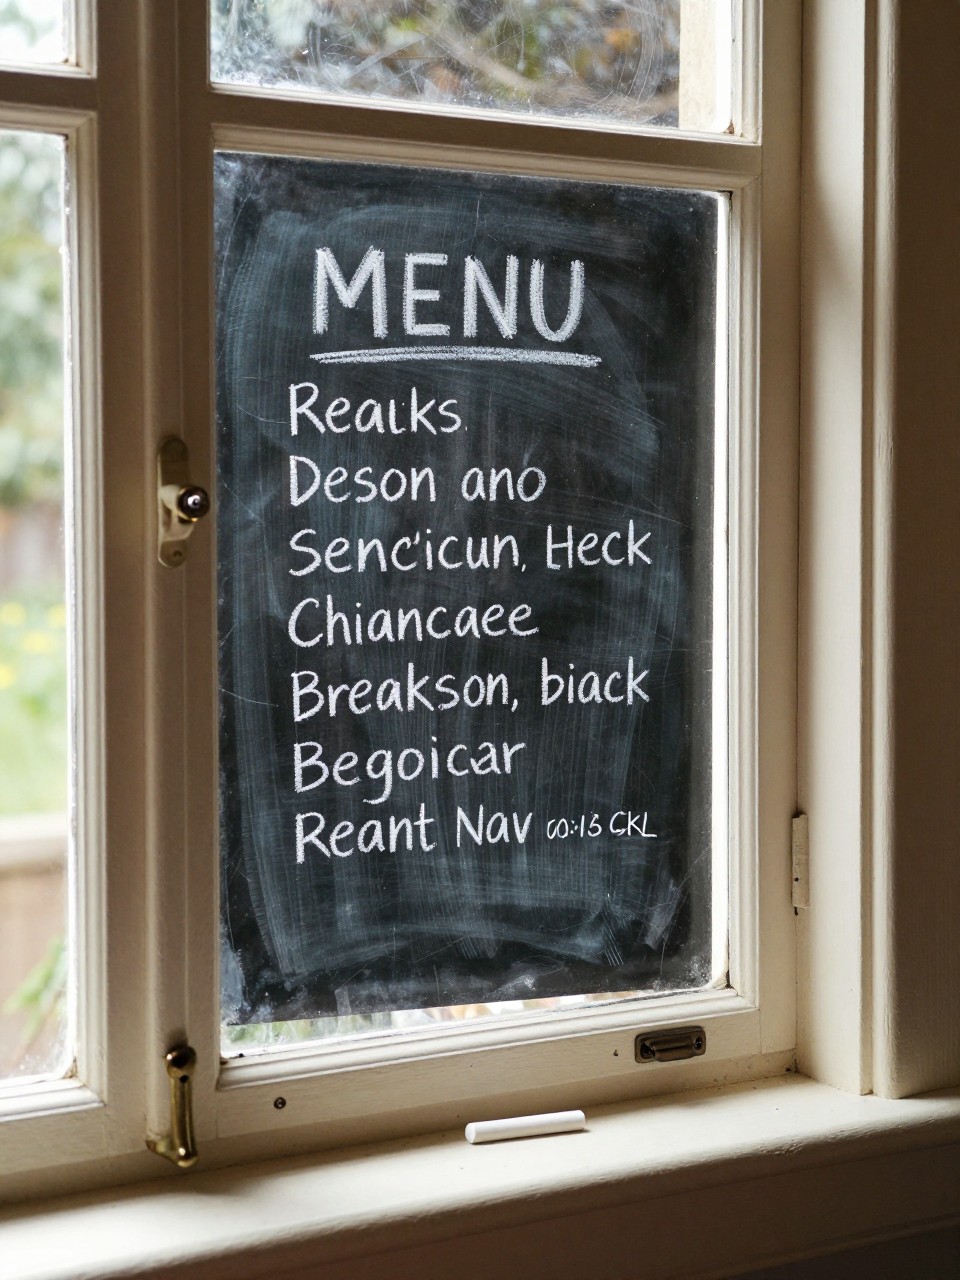 MENU
Realks.
Deson ano
Senc'icun, Heck
Chiancaee
Breakson, biack
Begoicar
Reant Nav